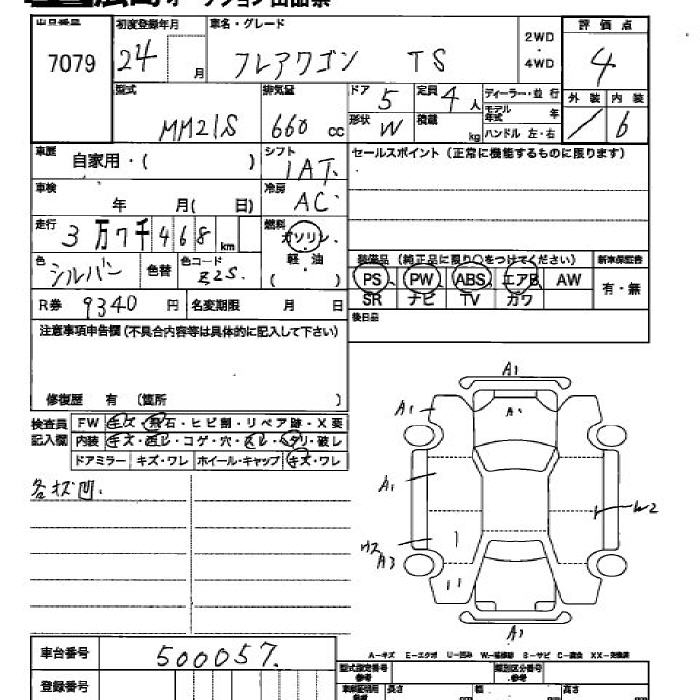 広島オークション出品票
出品番号 初度登録年月 車名・グレード 2WD・4WD 評価点
7079 24 月 フレアワゴン TS 4
型式 排気量 ドア 5 定員 4 人 ディーラー・並行 外装 内装
MM21S 660 cc 形状 W 積載 kg モデル年式 年 ハンドル 左・右 / 6
車歴 自家用・( ) シフト IAT セールスポイント(正常に機能するものに限ります)
車検 年 月( 日) 冷房 AC
走行 3万7千468km 燃料 ガソリン・軽・油 ( )
色 シルバー 色替 色コード Z2S. 装備品(純正品に限り○をつけてください) 新車保証書
PS PW ABS エアB AW 有・無
SR ナビ TV カワ
R券 9340 円 名変期限 月 日 後日品
注意事項申告欄(不具合内容等は具体的に記入して下さい)
修復歴 有 (箇所 )
検査員記入欄 FW キズ・飛石・ヒビ割・リペア跡・X要
内装 キズ・・コゲ・穴・スレ・・破レ
ドアミラー キズ・ワレ ホイール・キャップ キズ・ワレ
各キズ凹.
A1
A1 A1
A1 W2
A3
A3
A-キズ E-エクボ U-凹み W-補修跡 S-サビ C-腐食 XX-交換済
車台番号 500057. 型式指定番号 類別区分番号
登録番号 長さ cm 幅 cm 高さ cm